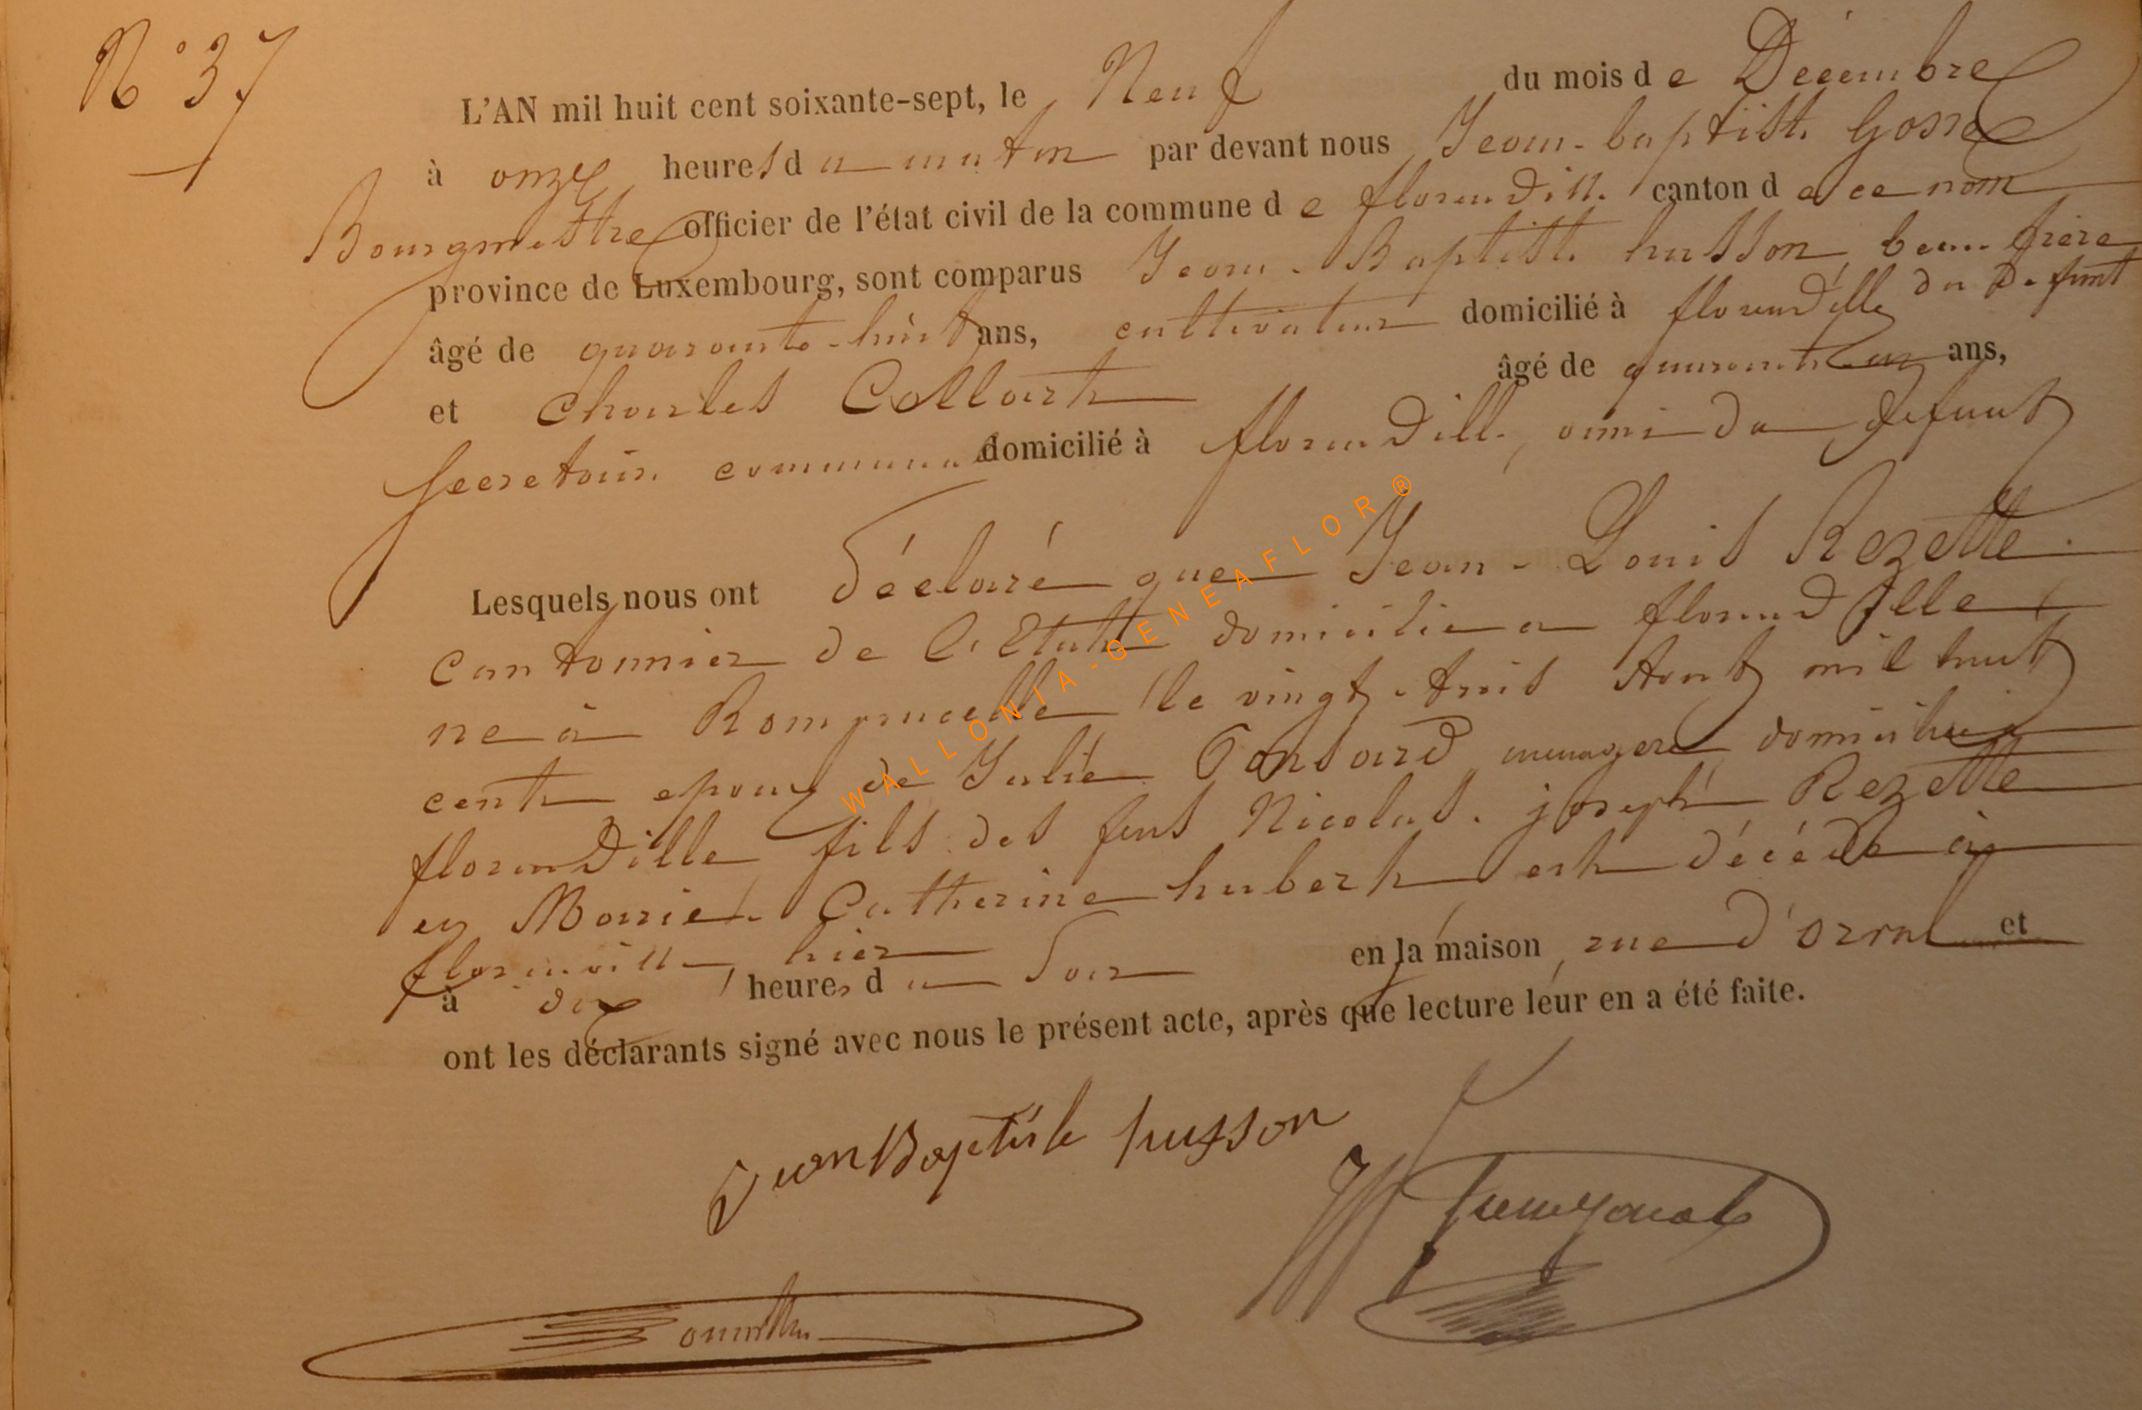 N° 37
L'AN mil huit cent soixante-sept, le Neuf du mois de Décembre
à onze heures du matin par devant nous Jean-baptiste Gosse
Bourgmestre officier de l'état civil de la commune de florenville canton de ce nom
province de Luxembourg, sont comparus Jean-Baptiste husson beau-frère
du Defunt
âgé de quarante-huit ans, cultivateur domicilié à florenville
et Charles Collart âgé de quarante ans,
secretaire communal domicilié à florenville, ami du defunt
Lesquels nous ont déclaré que Jean-Louis Rezette
cantonnier de l'Etat domicilie a florenville
ne à le vingt trois Aout mil huit
cent epoux de Julie Gonsard menagere domicilié
florenville fils des feus Nicolas joseph Rezette
et Marie Catherine hubert est décédé à
florenville hier
à dix heures du soir en la maison rue d'orval et
ont les déclarants signé avec nous le présent acte, après que lecture leur en a été faite.
Jean Baptiste husson
WALLONIA-GENEAFLOR®